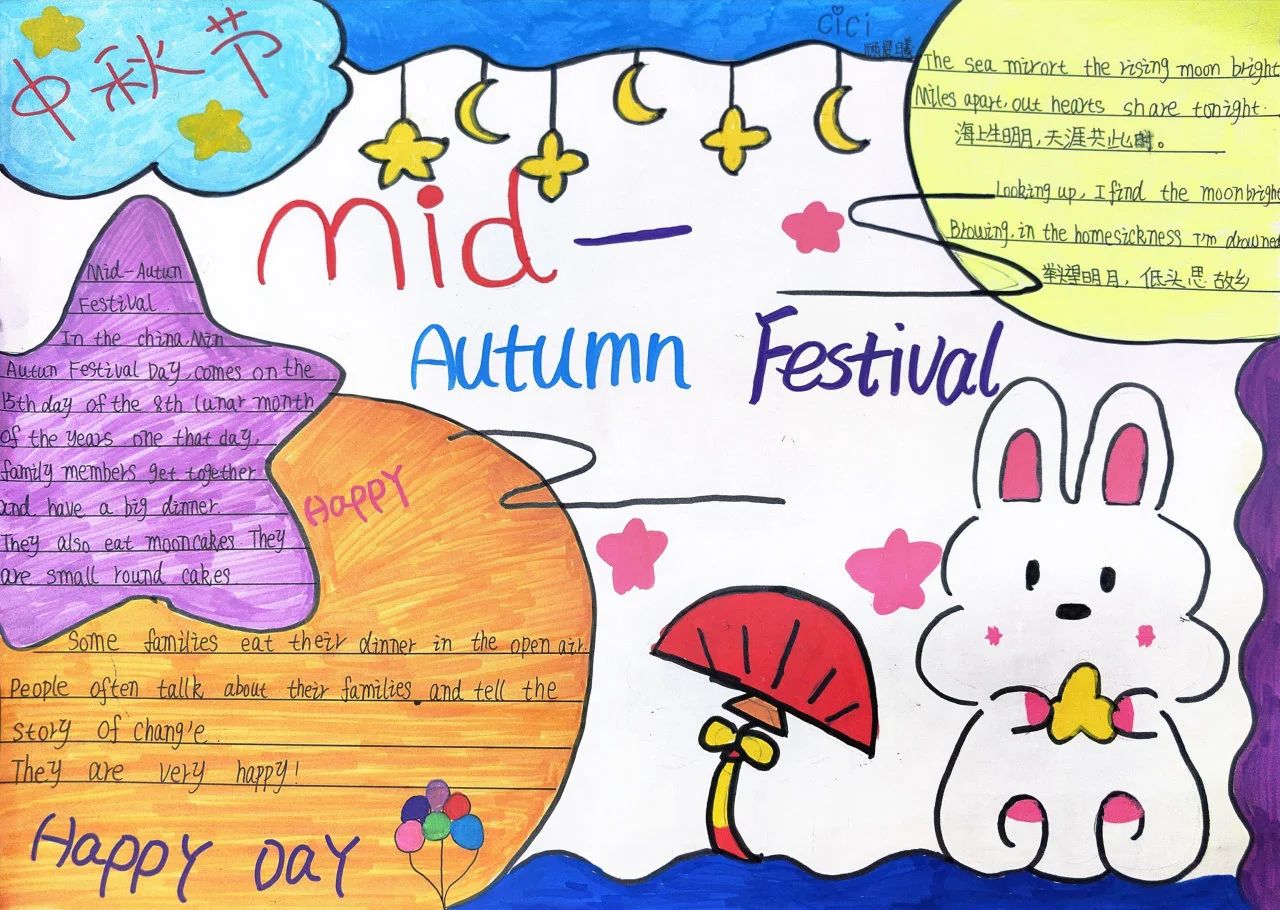 中秋节
cici
顾晨曦
The sea mirort the rising moon bright
Miles apart, out hearts share tonight.
海上生明月,天涯共此时。
Looking up, I find the moonbright
Browing, in the homesickness I'm drowned
举头望明月,低头思故乡
Mid-
Autumn Festival
Mid-Autun
Festival
In the china, Min
Autun Festival Day, comes on the
15th day of the 8th lunar month
of the years one that day,
family members get together
and have a big dinner.
They also eat mooncakes They
are small round cakes
Happy
Some families eat their dinner in the open air.
People often tallk about their families and tell the
story of chang'e.
They are very happy!
Happy DaY